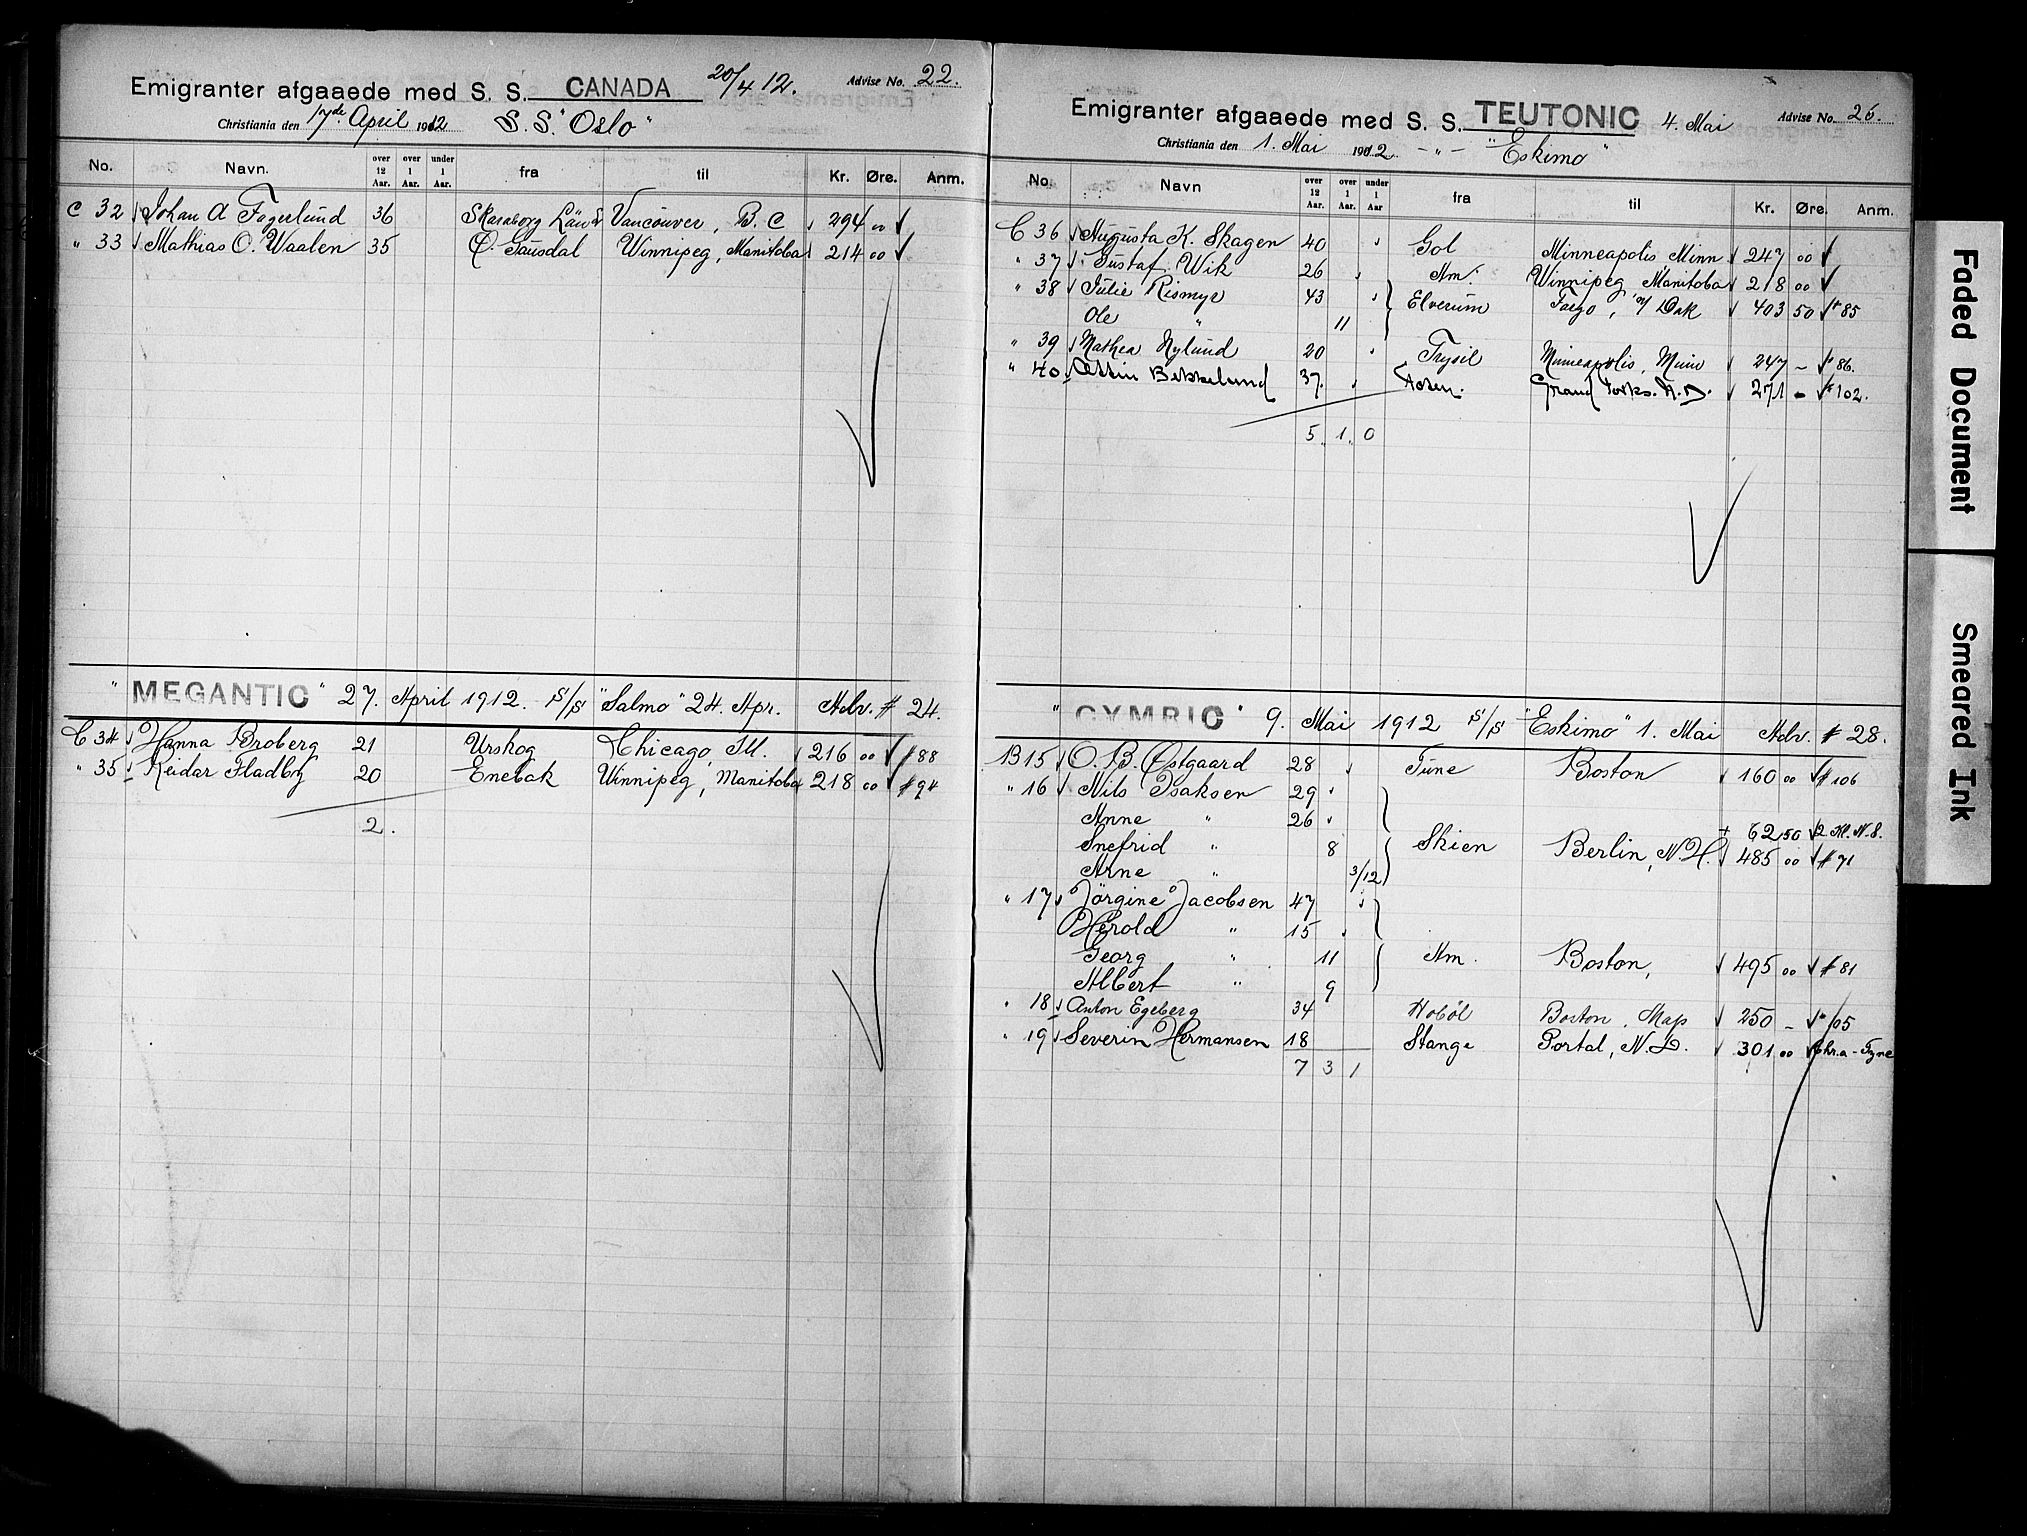 Emigranter afgaaede med S. S. CANADA 20/4 12. Advise No. 22.
Christiania den 17de April 1912 S. S. "Oslo"
No. Navn. over 12 Aar. over 1 Aar. under 1 Aar. fra til Kr. Øre. Anm.
C 32 Johan A Fagerlund 36 Skaraborg Län Vancouver, B. C 294 00
" 33 Mathias O. Waalen 35 Ø. Gausdal Winnipeg, Manitoba 214 00
"MEGANTIC" 27. April 1912. S/S "Salmo" 24. Apr. Adv. # 24.
C 34 Hanna Broberg 21 Urskog Chicago, Ill. 216 00 # 88
" 35 Reidar Fladby 20 Enebak Winnipeg, Manitoba 218 00 # 94
2.
Emigranter afgaaede med S. S. TEUTONIC 4. Mai Advise No. 26.
Christiania den 1. Mai 1912 - " - "Eskimo"
No. Navn over 12 Aar. over 1 Aar. under 1 Aar fra til Kr. Øre. Anm.
C 36 Augusta K. Skagen 40 Gol Minneapolis Minn 247 00
" 37 Gustaf Wik 26 Am. Winnipeg Manitoba 218 00
" 38 Julie Rismyr 43 Elverum Fargo, N Dak 403 50 # 85
Ole " 11
" 39 Mathea Nylund 20 Trysil Minneapolis, Minn 247 - # 86.
" 40 Bekkelund 37. Grand Forks. N. D. 271 - # 102.
5. 1. 0
"CYMRIC" 9. Mai 1912 S/S "Eskimo" 1. Mai Adv. # 28.
B 15 O. B. Østgaard 28 Tune Boston 160 00 # 106
" 16 Nils Isaksen 29
Anne " 26
+ 62 50 2 Kl. N.S.
Snefrid " 8 Skien Berlin, N. H. 485 00 # 71
Arne " 3/12
" 17 Jørgine Jacobsen 47
Herold " 15
Georg " 11 Am. Boston, 495 00 # 81
Albert " 9
" 18 Anton Egeberg 34 Hobøl Boston. Mass 250 - # 105
" 19 Severin Hermansen 18 Stange Portal, N. D. 301 00 Chr.a - Tyne
7 3 1
Faded Document
Smeared Ink